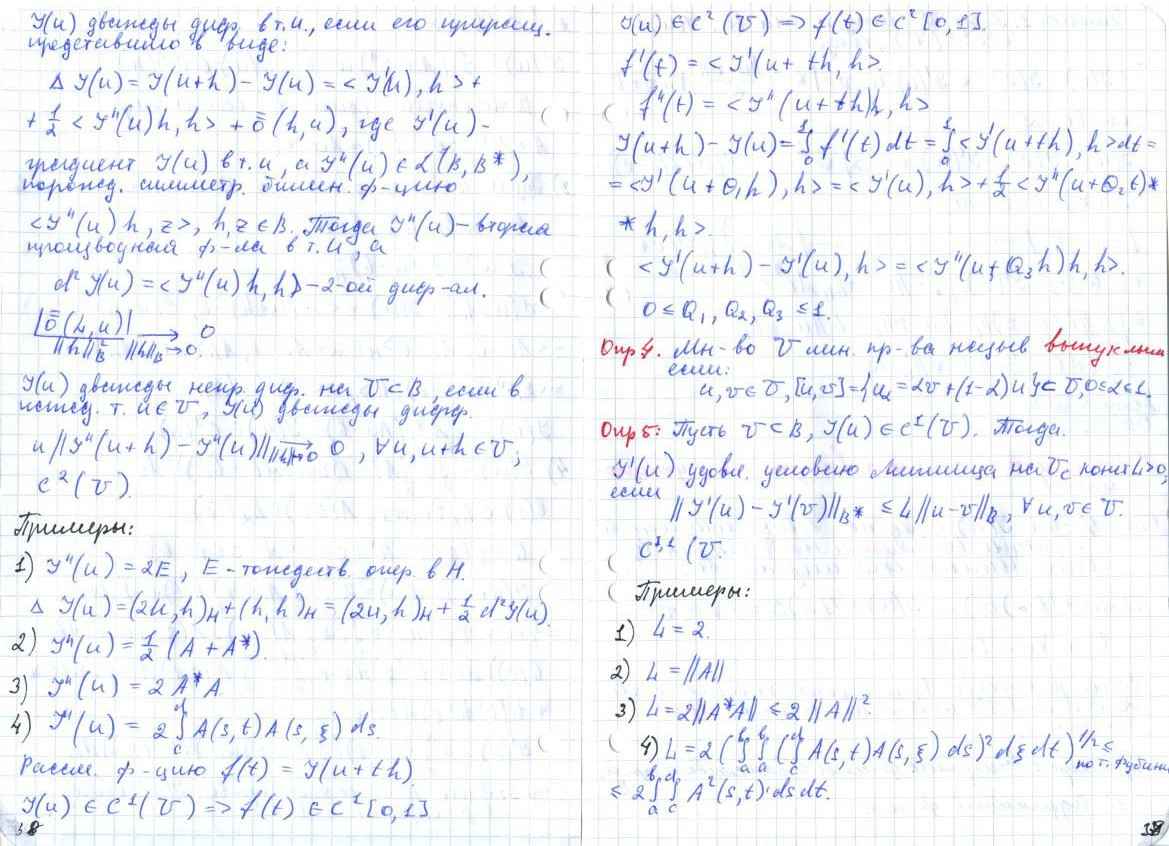 J(u) дважды диф. в т.u, если его приращ.
представимо в виде:
Δ J(u) = J(u+h) - J(u) = <J'(u), h> +
+ 1/2 <J''(u)h, h> + ō̄(h,u), где J'(u) -
градиент J(u) в т.u, а J''(u) ∈ L(B, B*),
порожд. симметр. билин. ф-цию
<J''(u)h, z>, h, z ∈ B. Тогда J''(u) - вторая
производная ф-ла в т.u, а
d²J(u) = <J''(u)h, h> - 2-ой диф-ал.
|ō̄(h,u)| / ||h||²_B → 0, ||h||_B → 0.
J(u) дважды непр. диф. на U ⊂ B, если в
кажд. т. u ∈ U, J(u) дважды дифф.
и ||J''(u+h) - J''(u)|| → 0, ||h|| → 0, ∀u, u+h ∈ U;
C²(U).
Примеры:
1) J''(u) = 2E, E - тождеств. опер. в H.
Δ J(u) = (2u, h)_H + (h, h)_H = (2u, h)_H + 1/2 d²J(u).
2) J''(u) = 1/2 (A + A*).
3) J''(u) = 2A*A
4) J''(u) = 2 ∫_c^d A(s,t) A(s,ξ) ds.
Рассм. ф-цию f(t) = J(u+th)
J(u) ∈ C¹(U) => f(t) ∈ C¹[0,1]
38
J(u) ∈ C²(U) => f(t) ∈ C²[0,1].
f'(t) = <J'(u+th, h>.
f''(t) = <J''(u+th)h, h>
J(u+h) - J(u) = ∫_0^1 f'(t)dt = ∫_0^1 <J'(u+th), h>dt =
= <J'(u+Θ₁h), h> = <J'(u), h> + 1/2 <J''(u+Θ₂t)*
* h, h>.
<J'(u+h) - J'(u), h> = <J''(u+Θ₃h)h, h>.
0 ≤ Θ₁, Θ₂, Θ₃ ≤ 1.
Опр 4. Мн-во U лин. пр-ва назыв выпуклым
если:
u, v ∈ U, [u,v] = {u_α = αv + (1-α)u} ⊂ U, 0≤α≤1.
Опр 5: Пусть U ⊂ B, J(u) ∈ C¹(U). Тогда.
J'(u) удовл. условию Липшица на U с конст L>0,
если
||J'(u) - J'(v)||_B* ≤ L||u-v||_B, ∀u, v ∈ U.
C^{1,1}(U.
Примеры:
1) L = 2.
2) L = ||A||
3) L = 2||A*A|| ≤ 2||A||².
4) L = 2(∫_a^b ∫_a^b (∫_c^d A(s,t)A(s,ξ) ds)² dξ dt)^{1/2} ≤ по т. Фубини
≤ 2 ∫_a^b ∫_c^d A²(s,t)·ds dt.